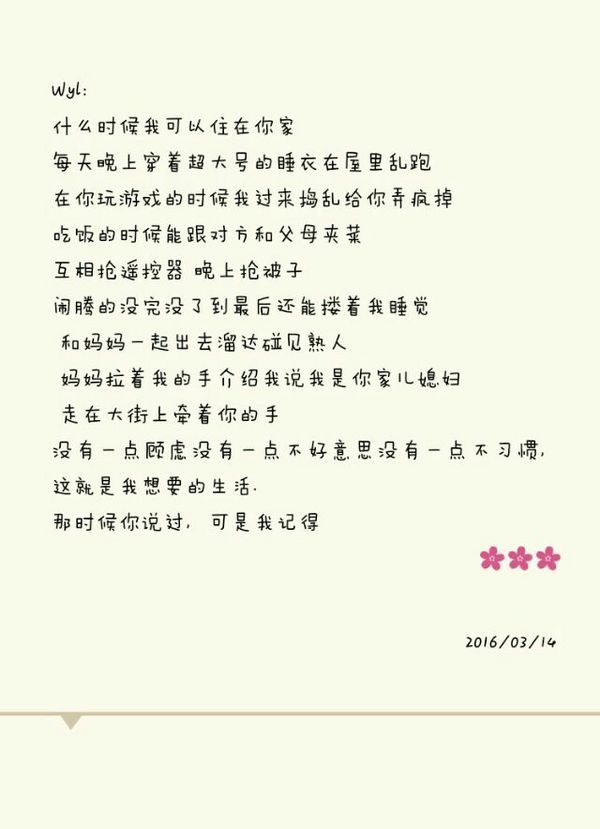 Wyl:
什么时候我可以住在你家
每天晚上穿着超大号的睡衣在屋里乱跑
在你玩游戏的时候我过来捣乱给你弄疯掉
吃饭的时候能跟对方和父母夹菜
互相抢遥控器 晚上抢被子
闹腾的没完没了到最后还能搂着我睡觉
和妈妈一起出去溜达碰见熟人
妈妈拉着我的手介绍我说我是你家儿媳妇
走在大街上牵着你的手
没有一点顾虑没有一点不好意思没有一点不习惯,
这就是我想要的生活.
那时候你说过, 可是我记得
2016/03/14